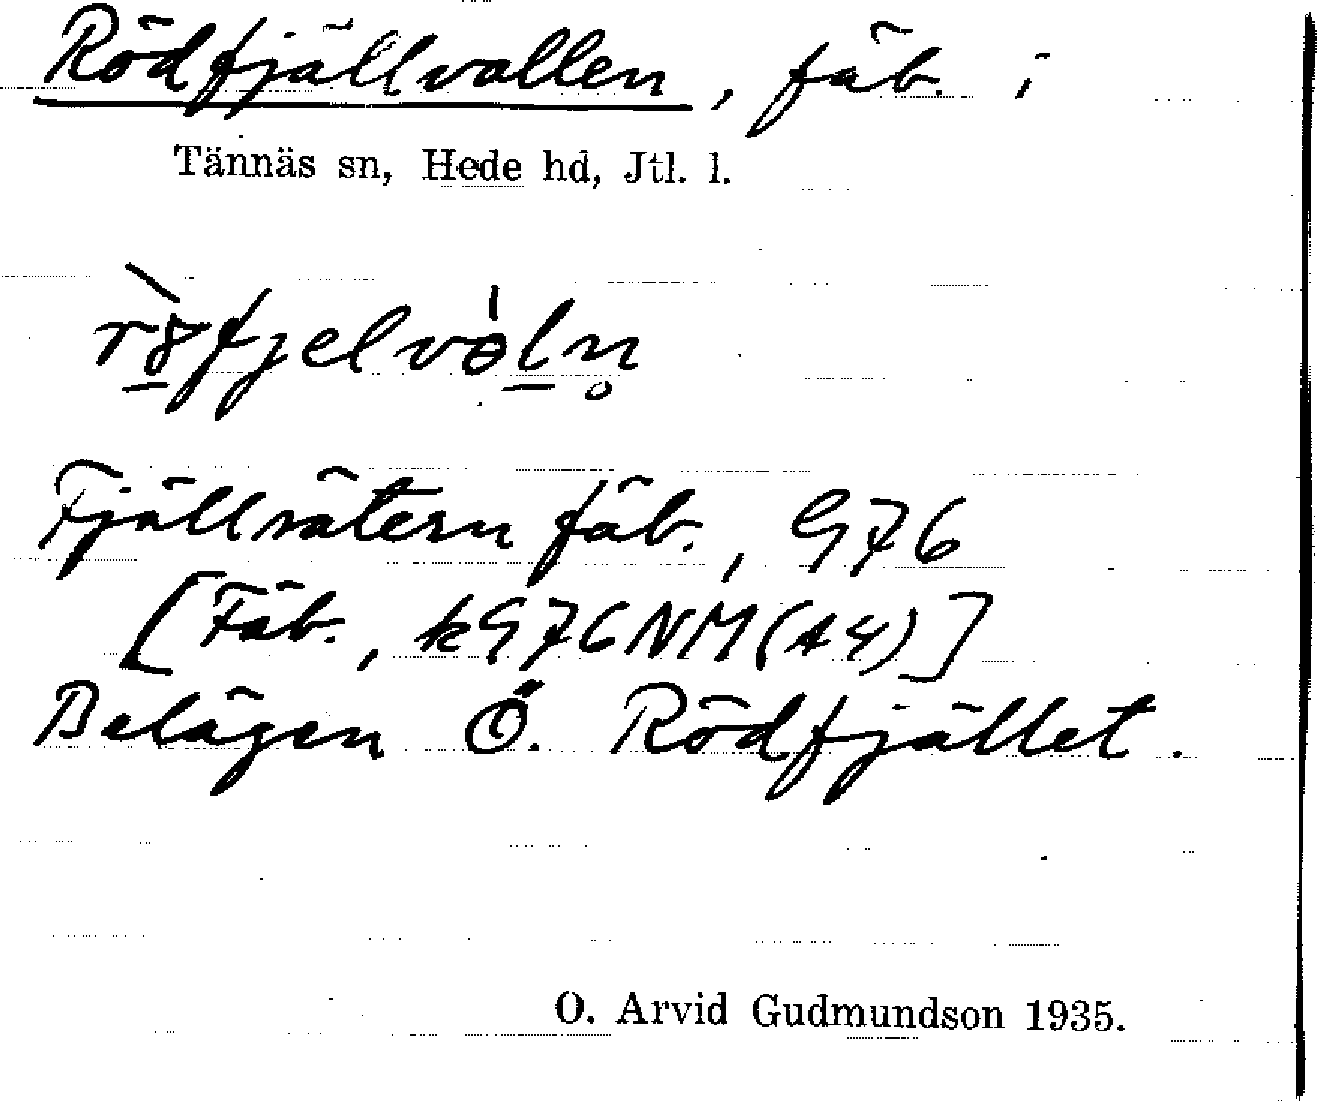 Rödfjällvallen, fäb. i
Tännäs sn, Hede hd, Jtl. l.
Fjällsätern fäb., G76
[Fäb., kG76NM(A4)]
Belägen Ö. Rödfjället.
O. Arvid Gudmundson 1935.